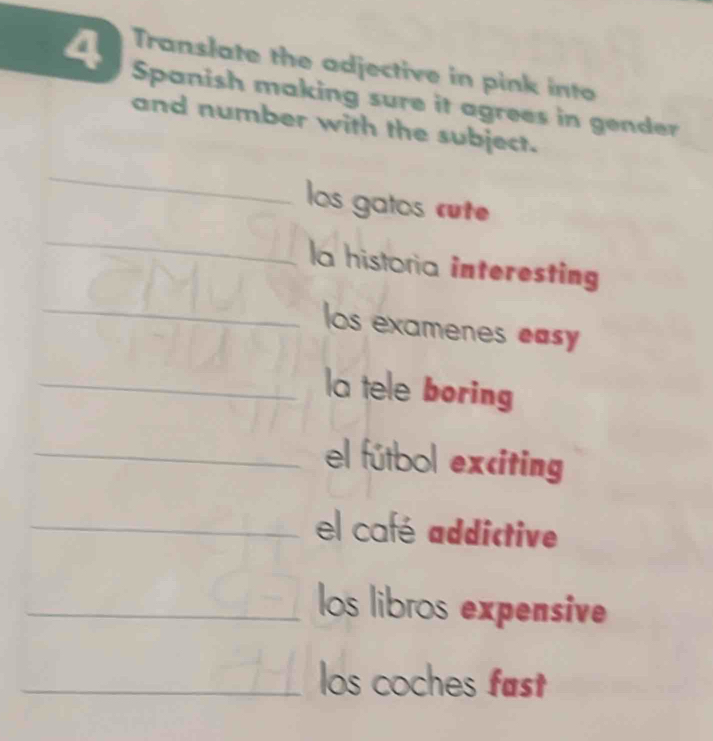 4 Translate the adjective in pink into
Spanish making sure it agrees in gender
and number with the subject.
los gatos cute
la historia interesting
los examenes easy
la tele boring
el fútbol exciting
el café addictive
los libros expensive
los coches fast